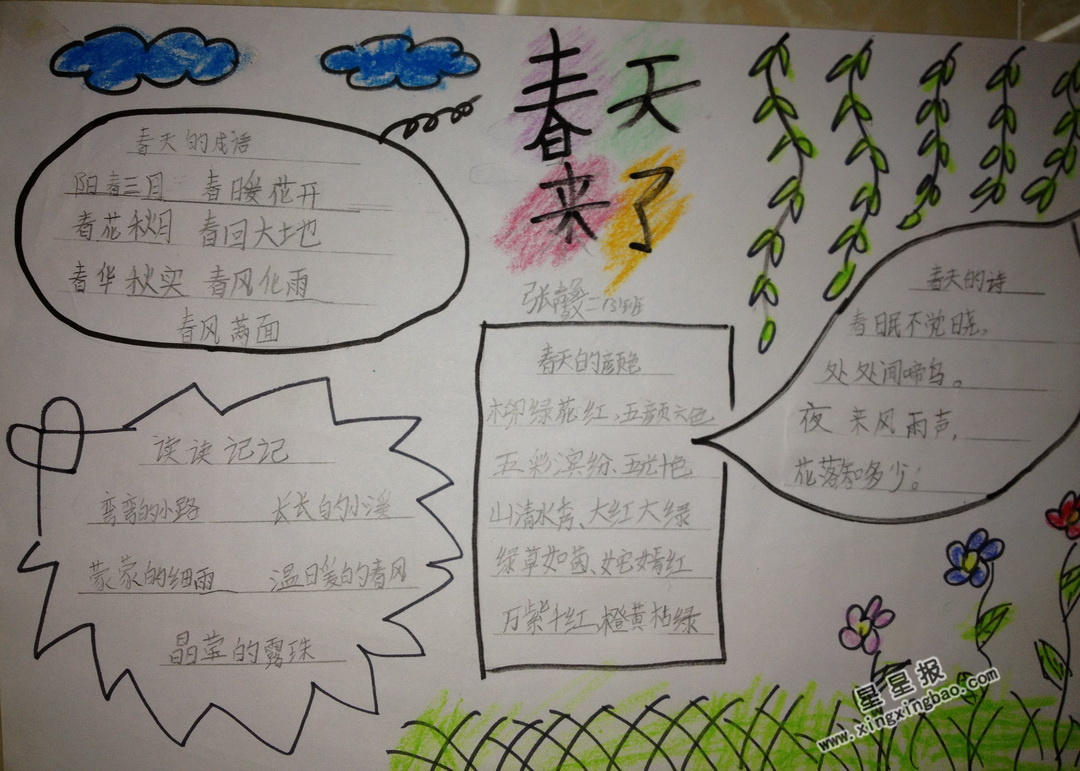 春天
来了
春天的成语
阳春三月 春暖花开
春花秋月 春回大地
春华秋实 春风化雨
春风满面
读读记记
弯弯的小路 长长的小溪
蒙蒙的细雨 温暖的春风
晶莹的露珠
春天的颜色
柳绿花红、五颜六色
五彩滨纷、五光十色
山清水秀、大红大绿
绿草如茵、姹嫣红
万紫千红、橙黄枯绿
春天的诗
春眠不觉晓,
处处闻啼鸟。
夜来风雨声,
花落知多少。
星星报
www.xingxingbao.com